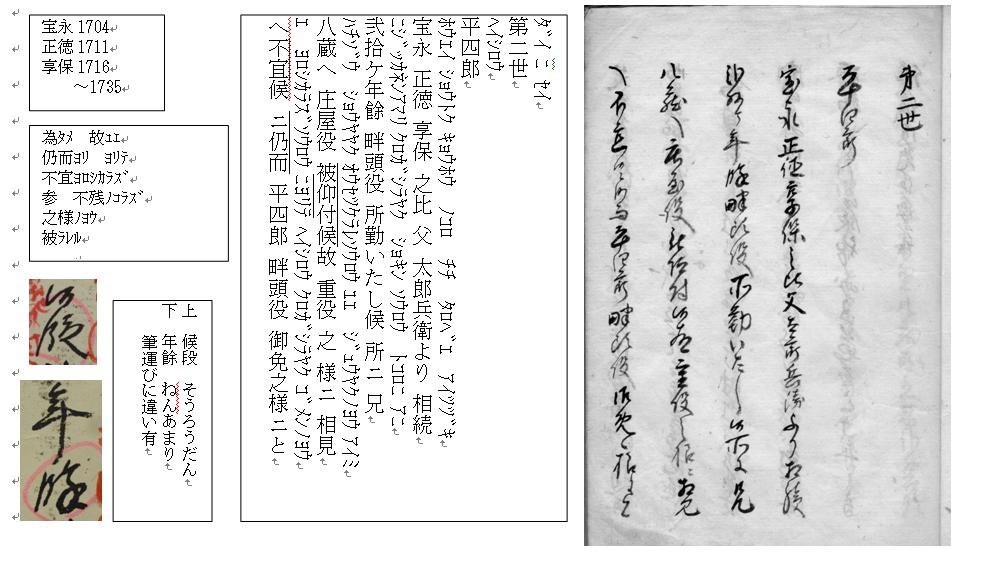 宝永 1704
正徳 1711
享保 1716
～1735
為ﾀﾒ 故ﾕｴ
仍而ﾖﾘ ﾖﾘﾃ
不宜ﾖﾛｼｶﾗｽﾞ
参 不残ﾉｺﾗｽﾞ
之様ﾉﾖｳ
被ﾗﾚﾙ
候段
年餘
上 候段 そうろうだん
下 年餘 ねんあまり
筆運びに違い有
ﾀﾞｲ ﾆ ｾｲ
第二世
ﾍｲｼﾛｳ
平四郎
ﾎｳｴｲ ｼｮｳﾄｸ ｷｮｳﾎｳ ﾉｺﾛ ﾁﾁ ﾀﾛﾍﾞｴ
宝永 正徳 享保 之比 父 太郎兵衛より 相続
ﾆｼﾞｯｶﾈﾝｱﾏﾘ ｸﾛｶﾞｼﾗﾔｸ ｼｮｷﾝ ｿｳﾛｳ ﾄｺﾛﾆ ｱﾆ
弐拾ケ年餘 畔頭役 所勤いたし候 所ニ 兄
ﾊﾁｿﾞｳ ｼｮｳﾔﾔｸ ｵｵｾﾂｹﾗﾚｿｳﾛｳ ﾕｴ ｼﾞｭｳﾔｸﾉﾖｳ ｱｲﾐ
八蔵へ 庄屋役 被仰付候故 重役 之 様ニ 相見
ｴ ﾖﾛｼｶﾗｽﾞｿｳﾛｳ ﾆﾖﾘﾃ ﾍｲｼﾛｳ ｸﾛｶﾞｼﾗﾔｸ ｺﾞﾒﾝﾉﾖｳ
へ不宜候 ニ仍而 平四郎 畔頭役 御免之様 ニと
第二世
平四郎
宝永正徳享保之比父太郎兵衛より相続
弐拾ケ年餘畔頭役所勤いたし候所ニ兄
八蔵へ庄屋役被仰付候故重役之様ニ相見
へ不宜候ニ仍而平四郎畔頭役御免之様ニと